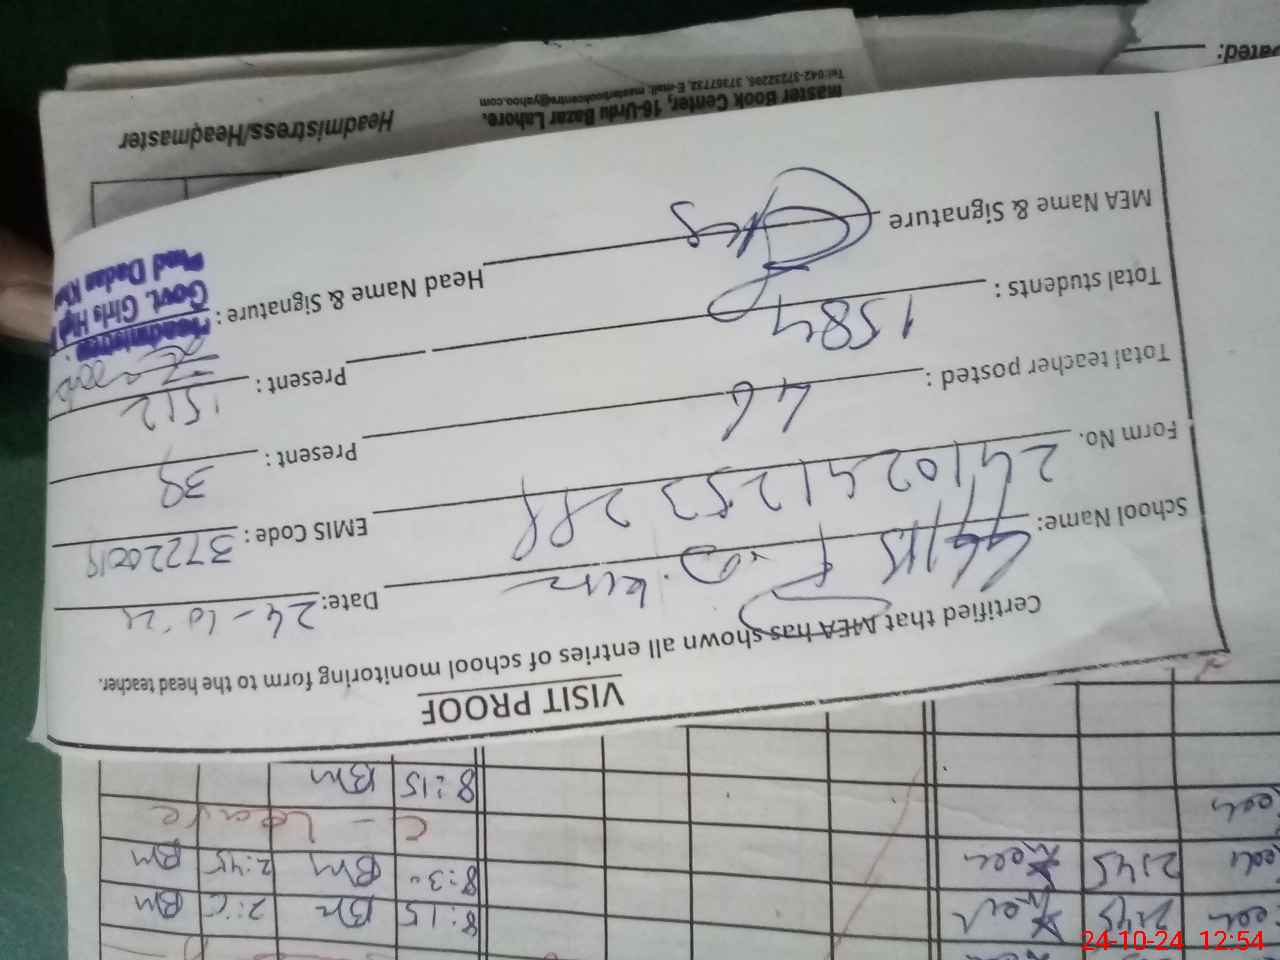 VISIT PROOF
Certified that MEA has shown all entries of school monitoring form to the head teacher.
School Name: GGHS P.D. Khan Date: 24-10-24
Form No. 24102412532 EMIS Code: 37220019
Total teacher posted: 46 Present: 39
Total students: 1584 Present: 1512
MEA Name & Signature Head Name & Signature:
Headmistress
Govt. Girls High
Pind Dadan Khan
Headmistress/Headmaster
master Book Center, 16-Urdu Bazar Lahore.
Tel: 042-37232296, 37367732, E-mail: masterbookcentre@yahoo.com
ated:
8:15 Bm
C - Leave
8:30 Bm 2:45 Bm
8:15 Bm Bm
2:45
2:45
24-10-24 12:54